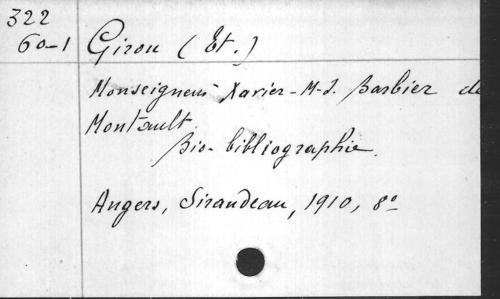 322
60-1
Girou (Et.)
Monseigneur Xavier-M-J. Barbier de
Montault
Bio-bibliographie.
Angers, Siraudeau, 1910, 8º